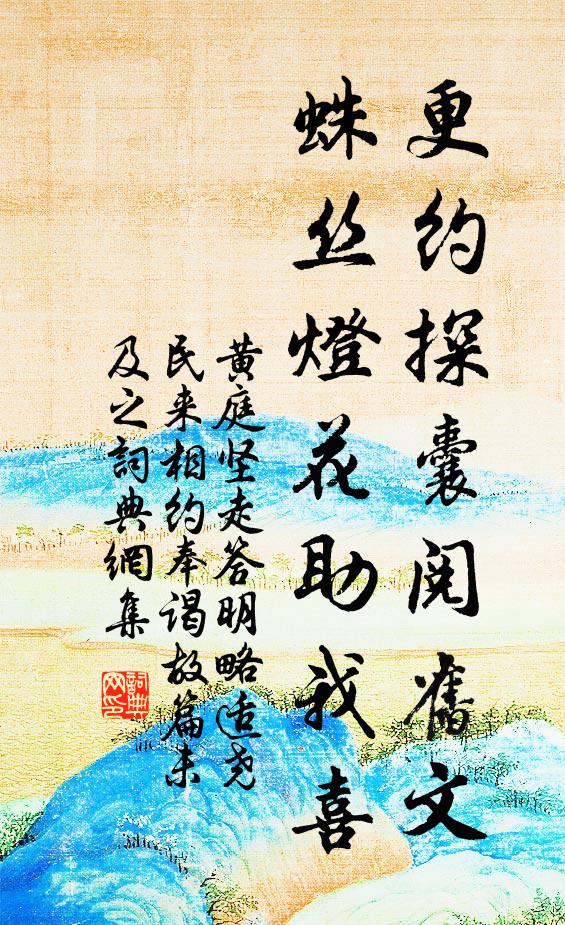 更约探囊阅旧文
蛛丝燈花助我喜
黄庭坚走答明略适尧
民来相约奉谒故篇末
及之詞典網集
詞典
网印